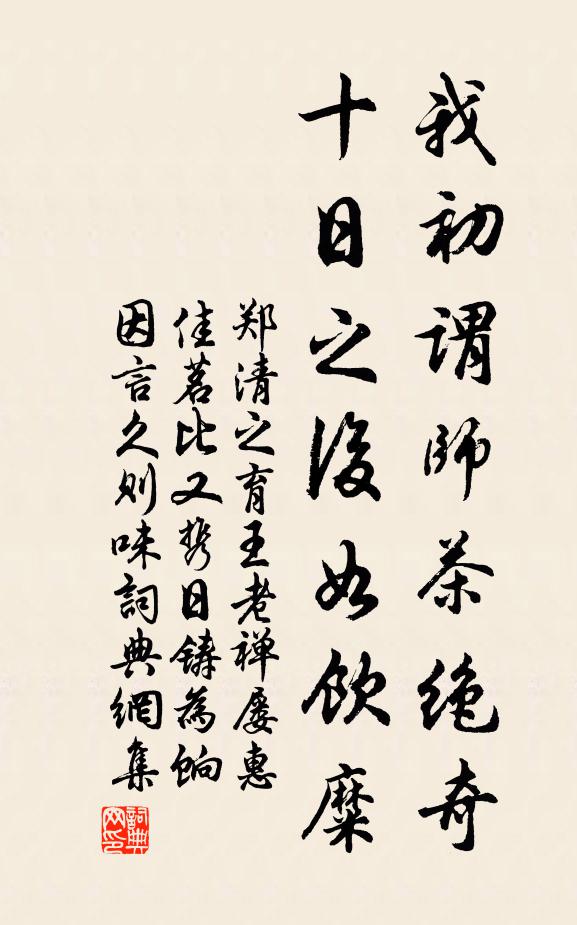 我初谓師茶绝奇
十日之後如飲糜
郑清之育王老禅屡惠
佳茗比又携日鑄為餉
因言久则味詞典網集
詞典网印